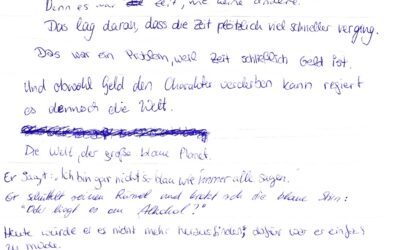 Denn es war Zeit, wie keine andere.
Das lag daran, dass die Zeit plötzlich viel schneller verging.
Das war ein Problem, weil Zeit schließlich Geld ist.
Und obwohl Geld den Charakter verderben kann regiert
es dennoch die Welt.
Die Welt, der große blaue Planet.
Er sagt: „Ich bin gar nicht so blau wie immer alle sagen."
Er schüttelt seinen Rüssel und kratzt sich die blaue Stirn:
"Oder liegt es am Alkohol?"
Heute würde er es nicht mehr herausfinden, dafür war er einfach
zu müde.